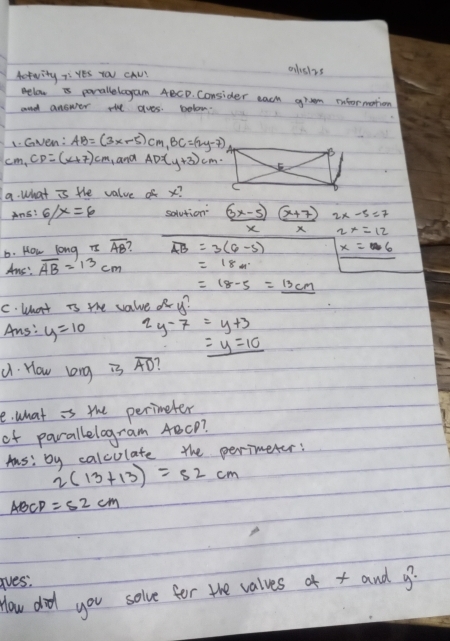 Activity 7: YES YOU CAN!
Below is parallelogram ABCD. Consider each given information
and answer the ques. below.
1. Given: AB = (3x-5) cm, BC = (2y-7)
cm, CD = (x+7) cm, and AD = (y+3) cm.
A B
E
C D
a. What is the value of x?
Ans: 6/x = 6
Solution: (3x-5) (x+7) 2x-5=7
x x 2x = 12
x = 6
b. How long is AB?
Ans: AB = 13 cm
AB = 3(6-5)
= 18
= 18-5 = 13cm
c. What is the value of y?
Ans: y = 10 2y-7 = y+3
= y = 10
d. How long is AD?
e. What is the perimeter
of parallelogram ABCD?
Ans: by calculate the perimeter:
2(13+13) = 52 cm
ABCD = 52 cm
ques:
How did you solve for the values of x and y?